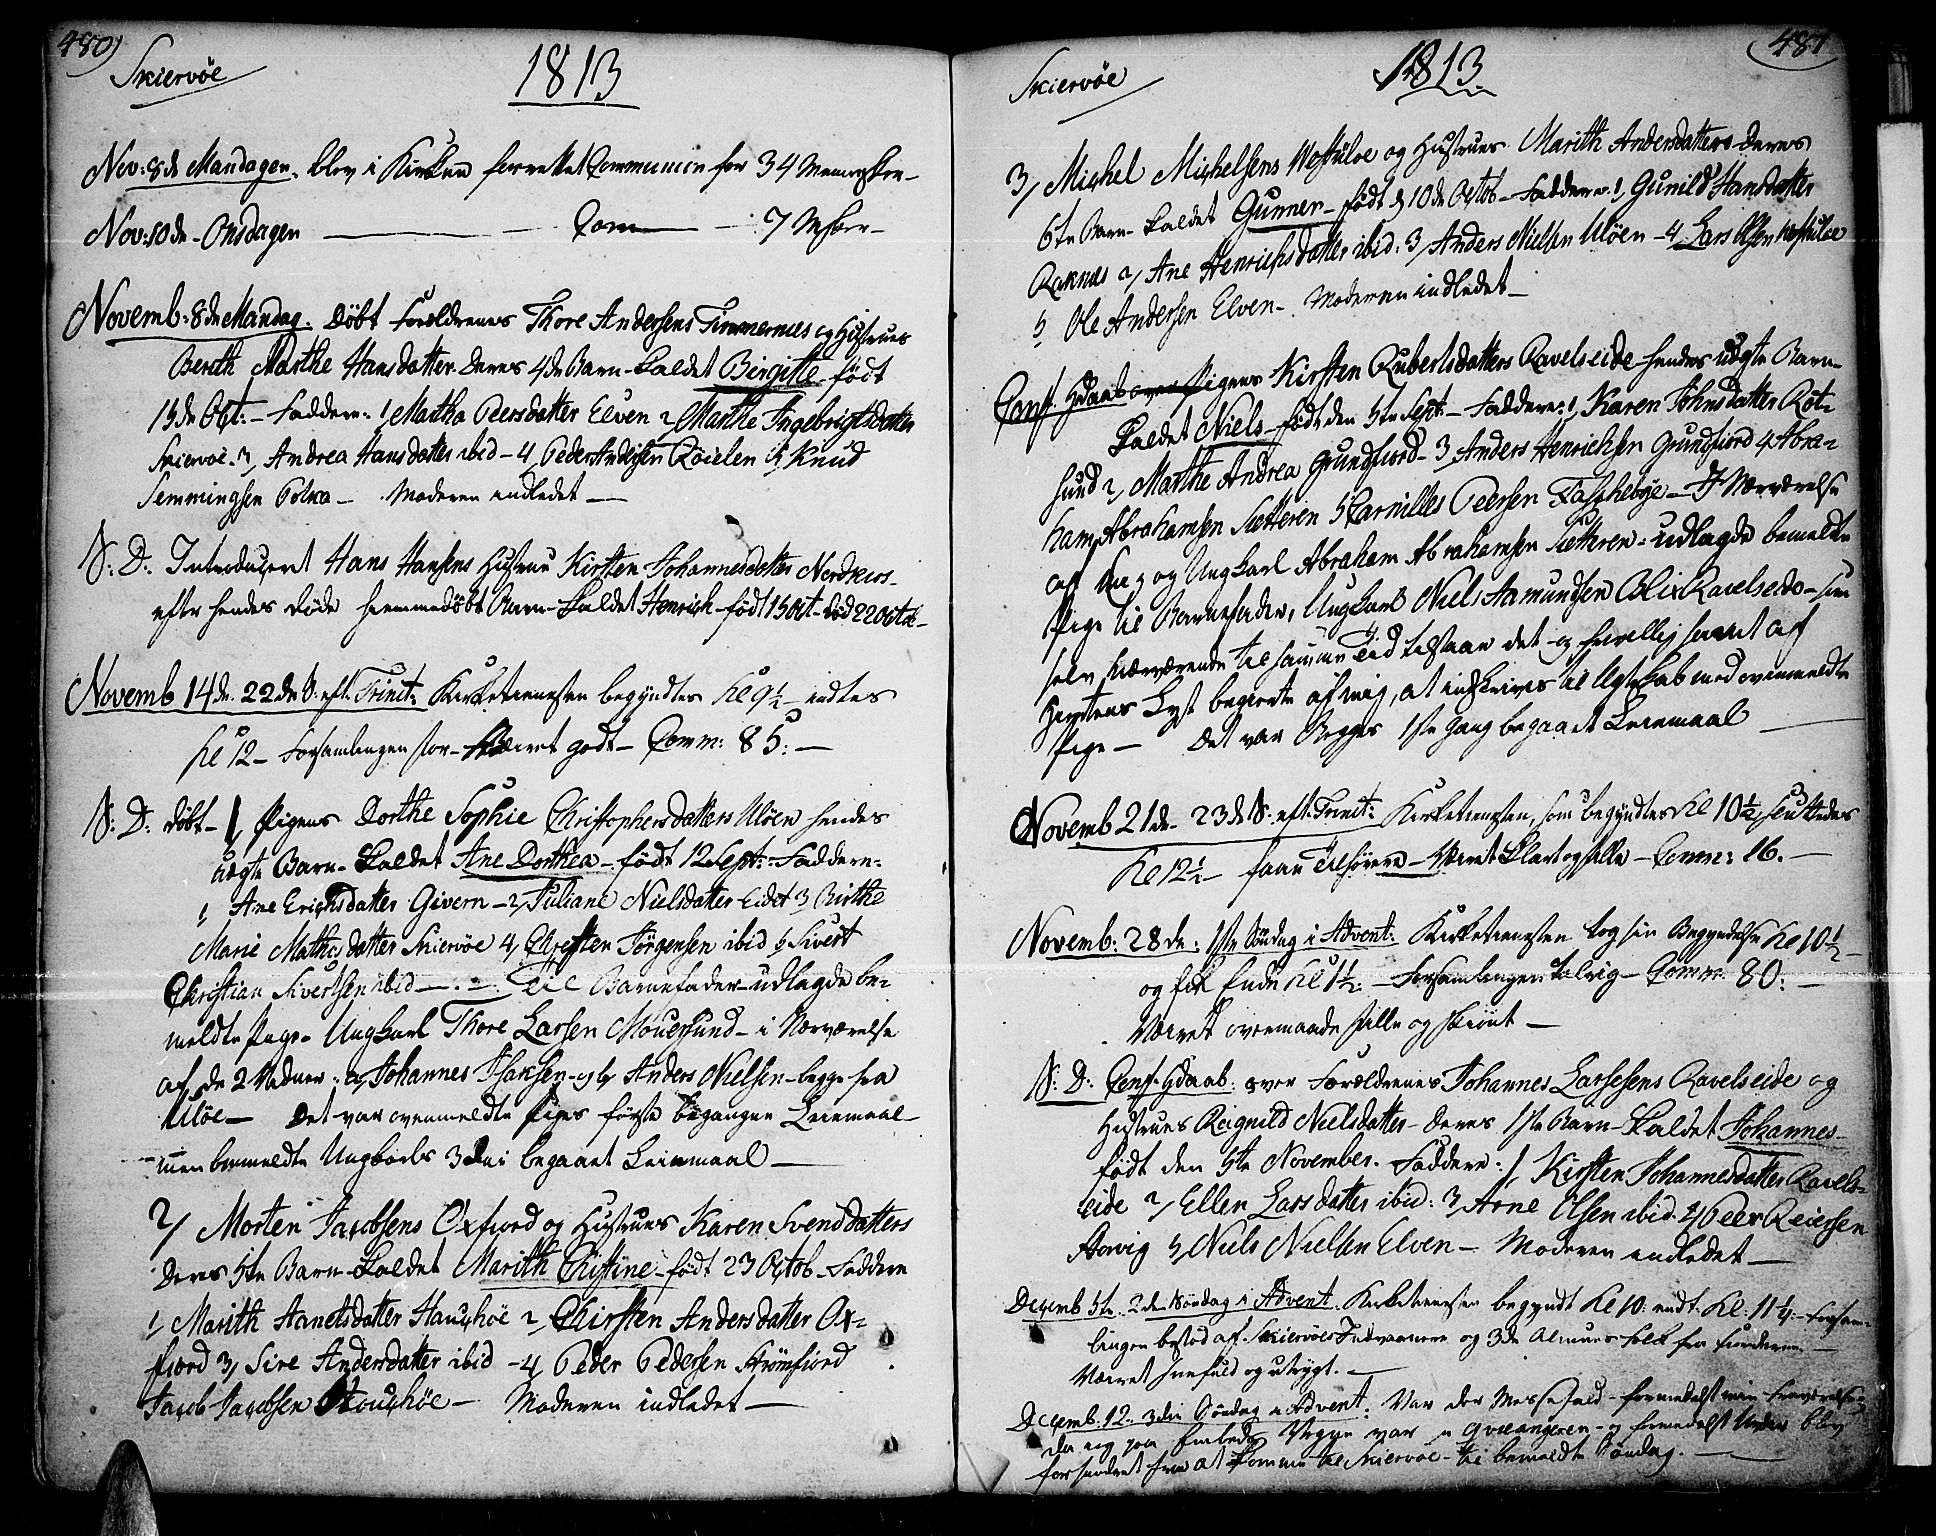 480)
Skiervöe
1813
Nov: 8de Mandagen. blev i Kirken forrettet Communion for 34 Mennesker –
Nov: 10de – Onsdagen — Com — 7 Msker –
Novemb: 8de Mandag. Döbt Forældrenes Thore Andersens Timmernæs og Hustrues
Berith Marthe Hansdatter deres 4de Barn – kaldet Birgitte – födt
15de Oct: – Faddere: 1, Martha Peersdatter Elven 2, Marthe Ingebrigtsdatter
Skiervöe. 3, Andrea Hansdatter ibid – 4, Peder Andersen Röielen 5, Knud
Semmingsen Tolva – Moderen indledet —
S: D: Introduceret Hans Hansens Hustrue Kirsten Johannesdatter
efter hendes döde hiemmedöbt Barn – kaldet Henrich – födt 15 Oct – död 22 Octob –
Novemb 14de. 22de S: eft. Trinit: Kirketienesten begyndtes Kl 9½ – endtes
Kl 12 – Forsamlingen stor – Væiret godt – Comm: 85: —
S: D: döbt – 1, Pigens Dorthe Sophie Christophersdatters Ulöen hendes
uægte Barn – kaldet Ane Dorthea – födt 12 Sept: – Faddere:
1, Ane Erichsdatter Givern – 2, Juliane Nielsdatter Eidet 3, Birthe
Marie Mathisdatter Skiervöe 4, Christen Jörgensen ibid 5 Sivert
Christian Sivertsen ibid — Til Barnefader – udlagde be-
meldte Pige – Ungkarl Thore Larsen Mouersund – i Nærværelse
af de 2 Vidner: a, Johannes Isaksen – og b, Anders Nielsen – begge fra
Ulöe — Det var ovenmeldte Piges förste begangen Leiermaal –
men bemeldte Ungkarls 3die begaaet Leiermaal —
2/ Morten Jacobsens Oxfiord og Hustrues Karen Svendsdatters
deres 5te Barn – kaldet Marith Christine – födt 23 Octob – Faddere
1, Marith Hanetsdatter Hauchöe 2, Chirsten Andersdatter Ox-
fiord 3, Sire Andersdatter ibid – 4, Peder Pedersen Strömfiord
Jacob Jacobsen Houchöe – Moderen indledet —
481
Skiervöe
1813
3, Michel Michelsens og Hustrues Marith Andersdatters deres
6te Barn – kaldet Gunner – födt d 10de Octob – Faddere: 1, Gunild Hansdatter
Raknæs 2, Ane Henrichsdatter ibid: 3, Anders Nielsen Ulöen – 4, Lars Olsen
5 Ole Andersen Elven –. Moderen indledet —
Conf. Hdaab over Pigens Kirsten Rubertsdatters Ravelseide hendes uægte Barn –
kaldet Niels – födt den 5te Sept – Faddere: 1, Karen Johnsdatter Röt-
sund 2, Marthe Andrea Grundfiord – 3, Anders Henrichsen Grundfiord 4 Abra-
ham Abrahamsen Sætteren 5 Carnilles Peersen Taschebye – I Nærværelse
af og Ungkarl Abraham Abrahamsen Sætteren – udlagde bemeldte
Pige til Barnefader, Ungkarl Niels Aamundsen Blix Ravelseide – som
selv nærværende til samme Tid tilstaar det – og frivillig samt af
Hiertens Lyst begierte af mig, at indskrives til Ægteskab med ovenmeldte
Pige — Det var Begges 1ste Gang begaaet Leiermaal —
Novemb 21de – 23de S: eft. Trinit: Kirketienesten, som begyndtes Kl 10½, sluttedes
Kl 12½ – faae Tilhörere – Væiret klart og stille – Comm: 16. —
Novemb: 28de: 1ste Söndag i Advent: Kirketienesten tog sin Begyndelse Kl 10½ –
og fik Ende Kl 1½: – Forsamlingen talrig – Comm: 80: —
Væiret overmaade stille og skiönt —
S: D: Conf. Hdaab: over Forældrenes Johannes Larsesens Ravelseide og
Hustrues Ragnild Nielsdatter – deres 1ste Barn – kaldet Johannes –
födt den 5te November. Faddere: 1, Kirsten Johannesdatter Ravels-
eide 2, Ellen Larsdatter ibid: 3, Arne Olsen ibid. 4, Peer Reiersen
Aarvig 5, Niels Nielsen Elven – Moderen indledet —
Decemb 5te. 2den Söndag i Advent. Kirketienesten begyndt Kl 10: endt Kl: 11¼ – Forsam-
lingen bestod af Skiervöes Indvaanere og 3de Almues Folk fra Fiorderne. —
Væiret snefuld og utrygt. —
Decemb. 12. 3die Söndag i Advent. Var der Messefald – formedelst min Fraværelse
da ieg paa Embeds Vegne var i Qvænangeren – og formedelst blev
forhindret fra at komme til Skiervöe – til bemeldte Söndag. —